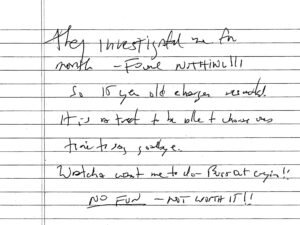 they investigated me for
month - Found NOTHING!!!
So 15 year old charges resulted.
It is a treat to be able to choose ones
time to say goodbye.
Watcha want me to do - Bust out crying!!
NO FUN - NOT WORTH IT!!